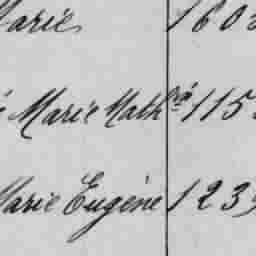 Marie 160
Marie Math 115
Marie Eugène 123